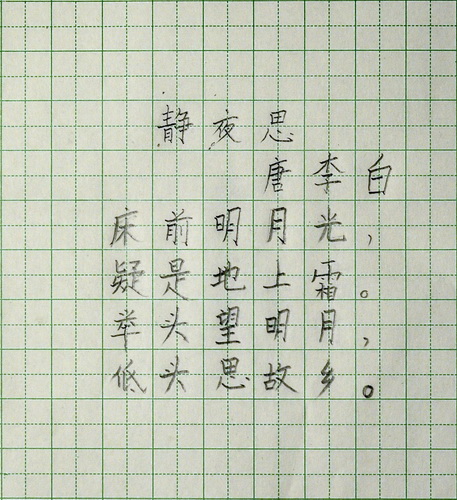 静夜思
唐李白
床前明月光，
疑是地上霜。
举头望明月，
低头思故乡。